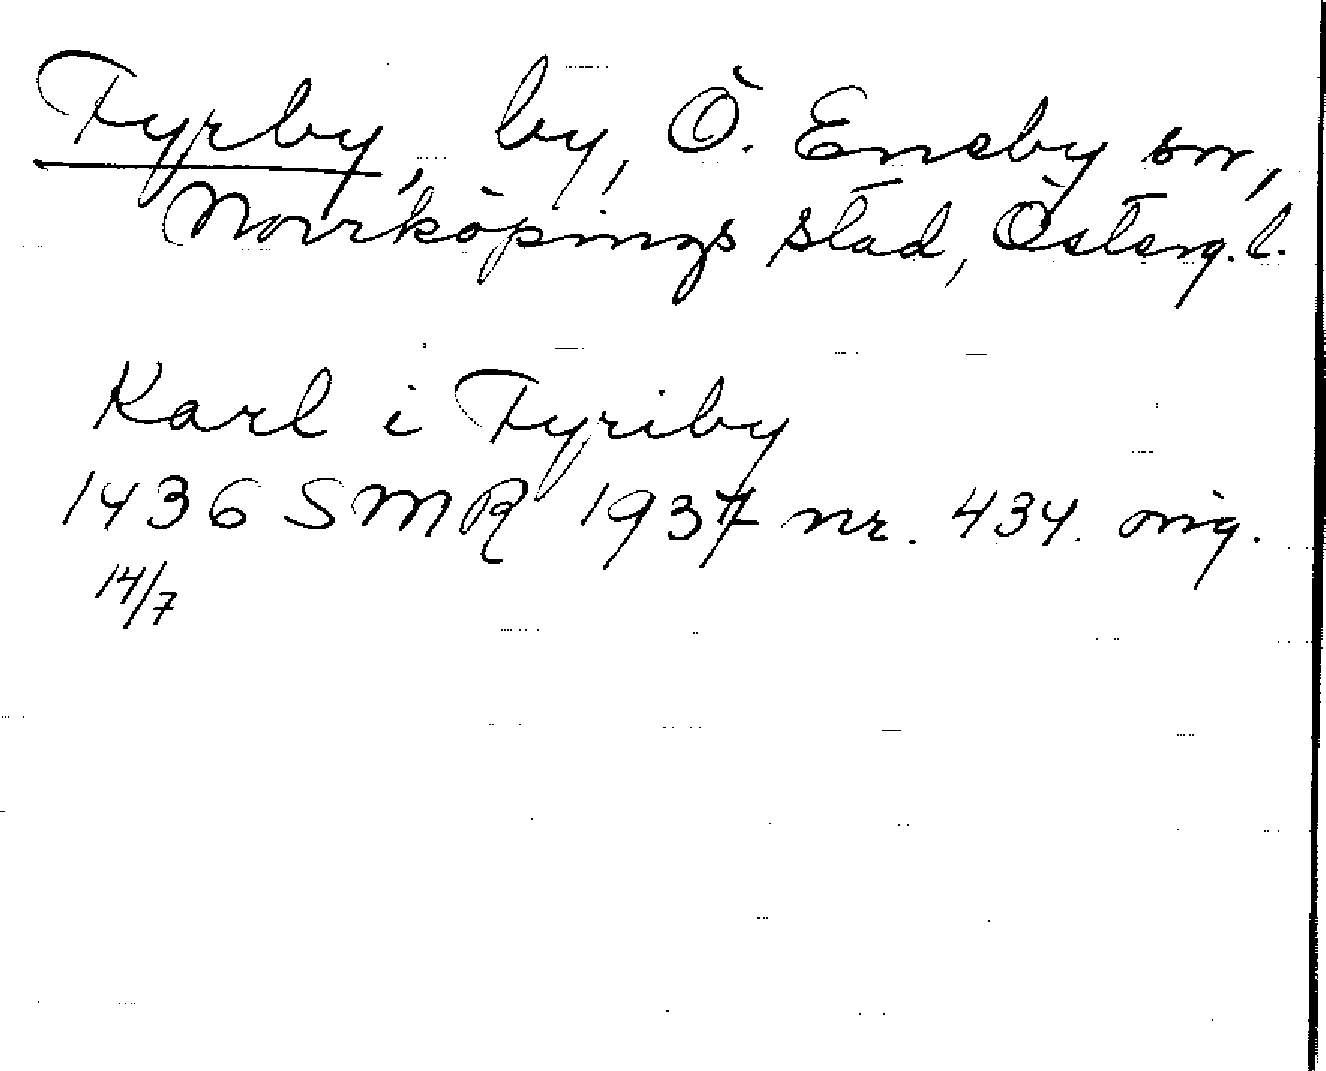 Fyrby, by, Ö. Eneby sn,
Norrköpings stad, Österg. l.
Karl i Fyriby
1436 SMR 1937 nr. 434. orig.
14/7